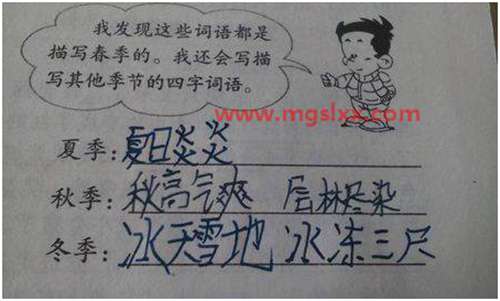 我发现这些词语都是
描写春季的。我还会写描
写其他季节的四字词语。
www.mgslxx.com
夏季：夏日炎炎
秋季：秋高气爽 层林尽染
冬季：冰天雪地 冰冻三尺